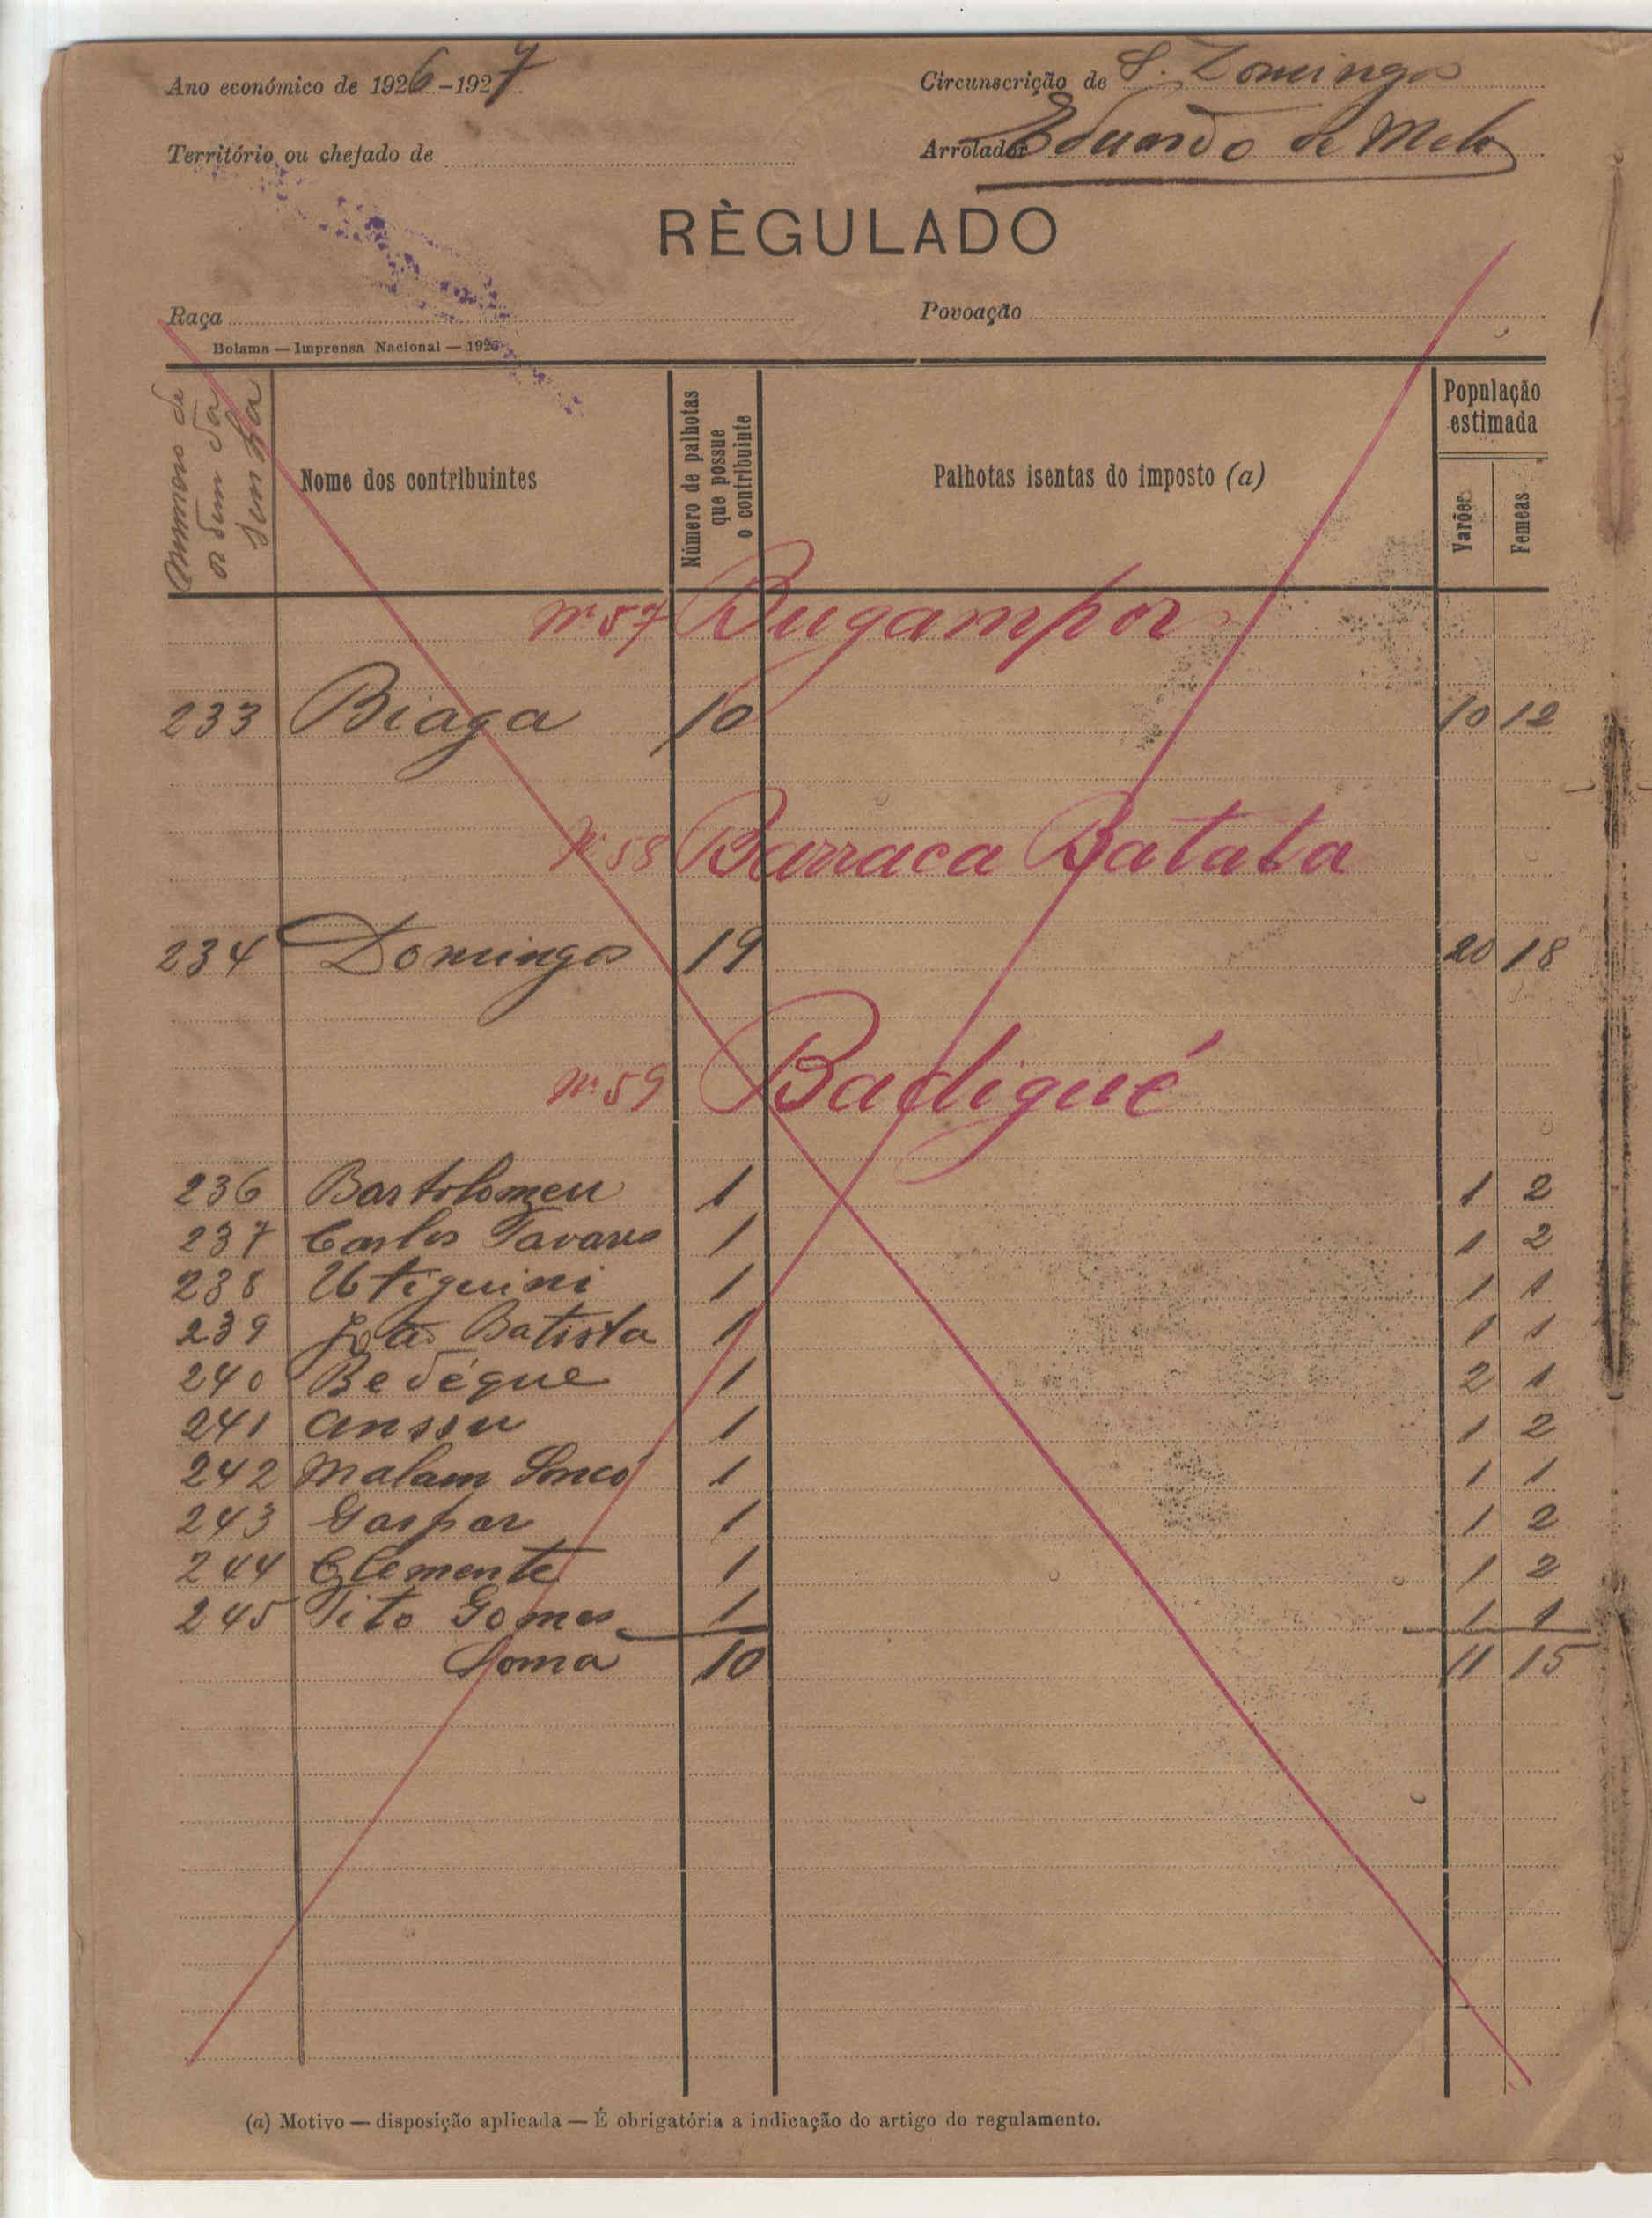 Ano económico de 1926-1927
Circunscrição de S. Domingos
Território ou chefado de
Arrolador Eduardo de Melo
RÈGULADO
Raça
Povoação
Bolama — Imprensa Nacional — 192
Numero de ordem da senha
Nome dos contribuintes
Número de palhotas que possue o contribuinte
Palhotas isentas do imposto (a)
População estimada
Varões
Femeas
Nº 57 Bugampor
233 Biaga 10 10 12
Nº 58 Barraca Batata
234 Domingos 19 20 18
Nº 59 Badigué
236 Bartolomeu 1 1 2
237 Carlos Tavares 1 1 2
238 Utiguini 1 1 1
239 João Batista 1 1 1
240 Bedégue 1 2 1
241 Anssu 1 1 2
242 Malam Soncó 1 1 1
243 Gaspar 1 1 2
244 Clemente 1 1 2
245 Tito Gomes 1 1 1
Soma 10 11 15
(a) Motivo — disposição aplicada — É obrigatória a indicação do artigo do regulamento.